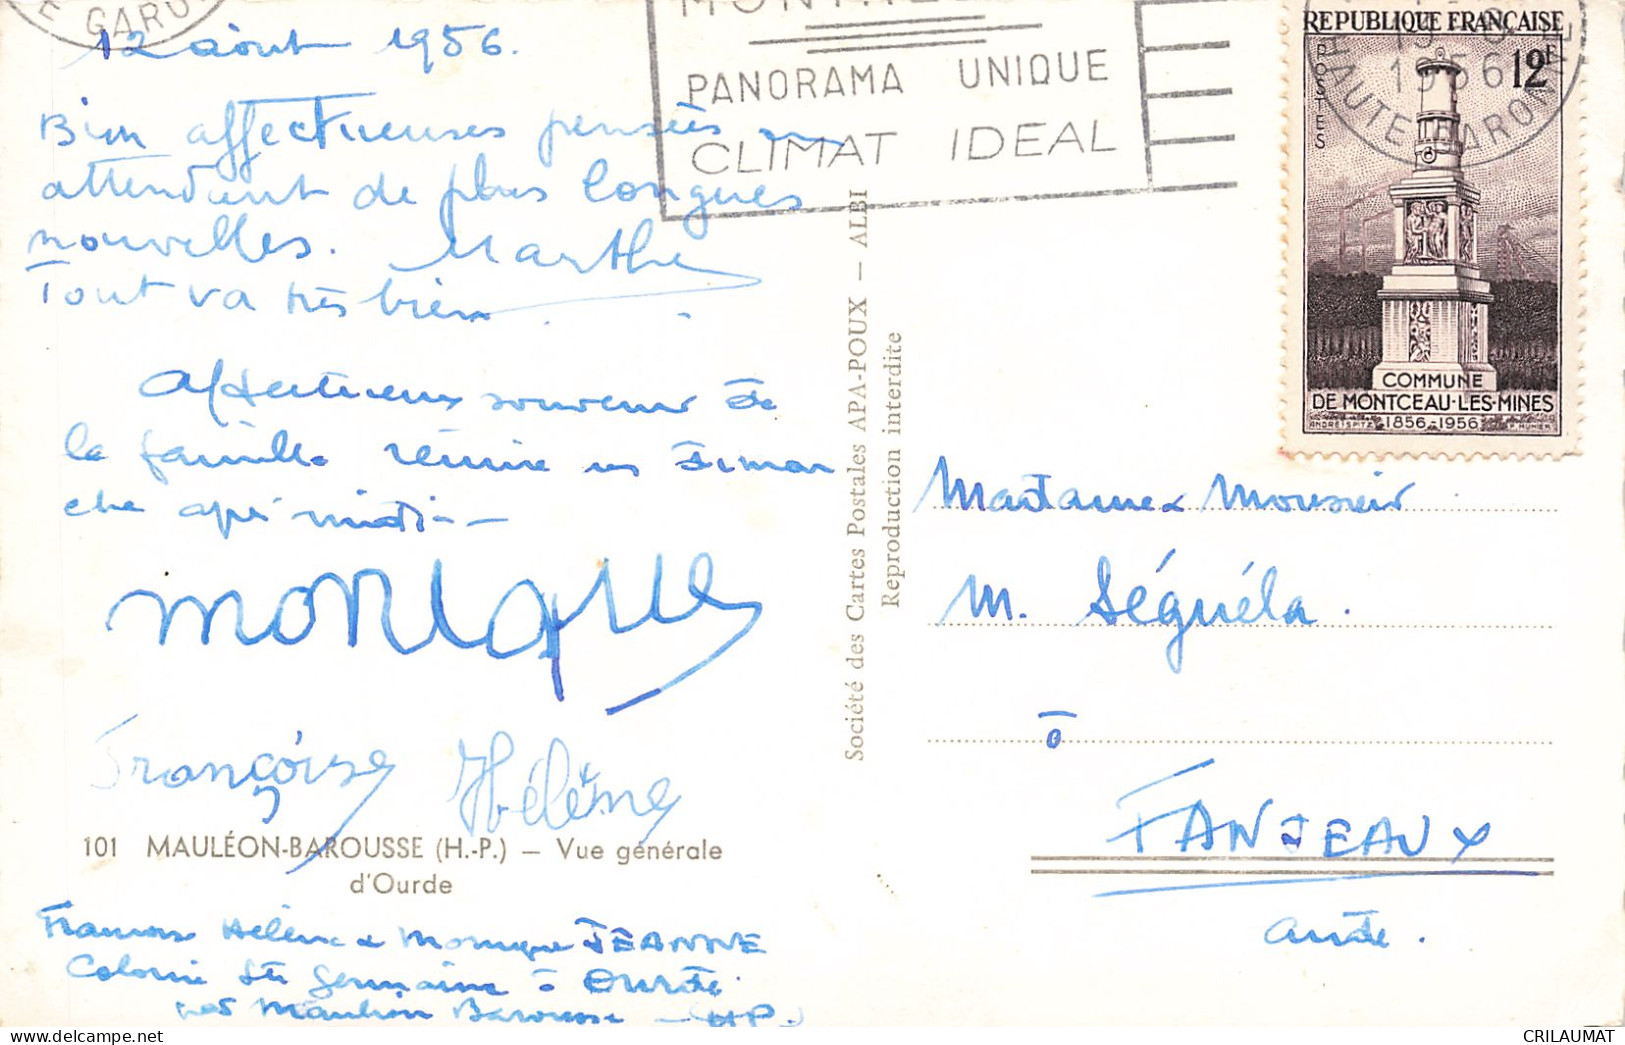 GARO
12 août 1956.
Bien affectueuses pensées en
attendant de plus longues
nouvelles. Marthe
Tout va très bien.
Affectueux souvenir de
la famille réunie en diman
che après midi --
monique
Françoise Hélène
101 MAULÉON-BAROUSSE (H.-P.) — Vue générale
d'Ourde
Hélène & Monique JEANNE
Colonie Ste Germaine à Ourde
par Mauléon Barousse - (HP.)
Société des Cartes Postales APA-POUX — ALBI
Reproduction interdite
PANORAMA UNIQUE
CLIMAT IDEAL
1956
HAUTE GARONN
REPUBLIQUE FRANÇAISE
POSTES
12F
COMMUNE
DE MONTCEAU-LES-MINES
1856-1956
Madame & Monsieur
M. Séguéla.
à
FANJEAUX
Aude.
CRILAUMAT